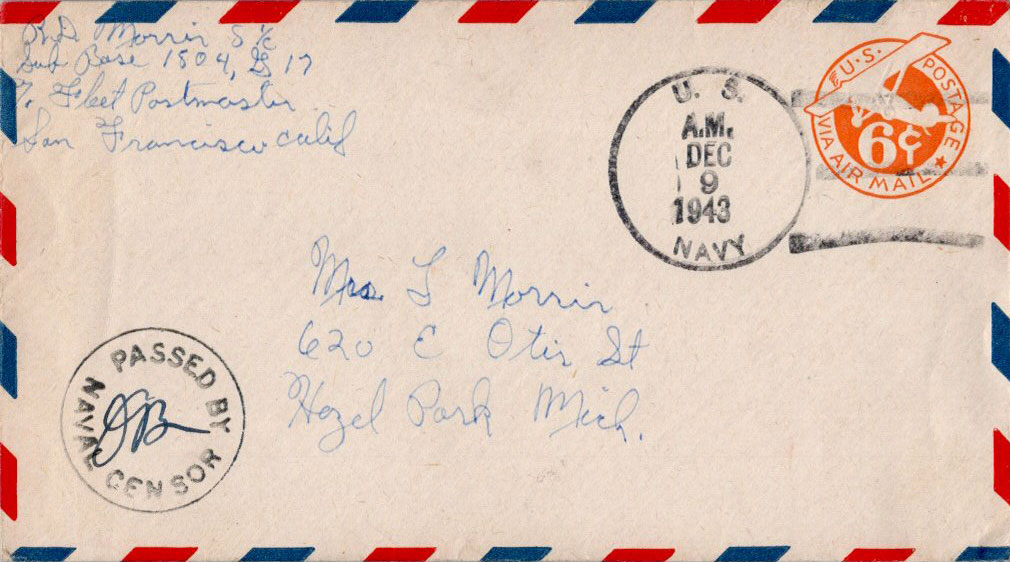 R.D. Morris S 1/c
Sub Base 1504, G 17
℅ Fleet Postmaster
San Francisco Calif
U. S.
A.M.
DEC
9
1943
NAVY
U.S. POSTAGE
6¢
VIA AIR MAIL
Mrs. L Morris
620 E Otis St
Hazel Park Mich.
PASSED BY
NAVAL CENSOR